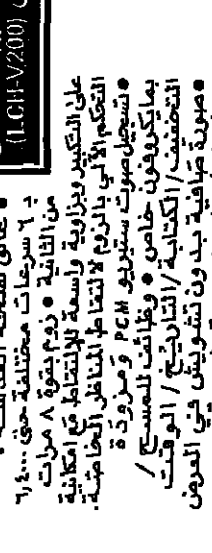 (LCH-V200)
بـ ٦ سرعات مختلفة حتى ٦,٤٠٠
من الثانية • زوم بقوة ٨ مرات
على التكبير وبزاوية واسعة للإلتقاط مع امكانية
التحكم الآلي بالزوم لالتقاط المناظر الخاصة.
• تسجيل صوت ستيريو PCM ومزودة
بمايكروفون خاص • وظائف للمسح /
التخفيف / الكتابة / التاريخ / الوقت
• صورة صافية بدون تشويش في العرض